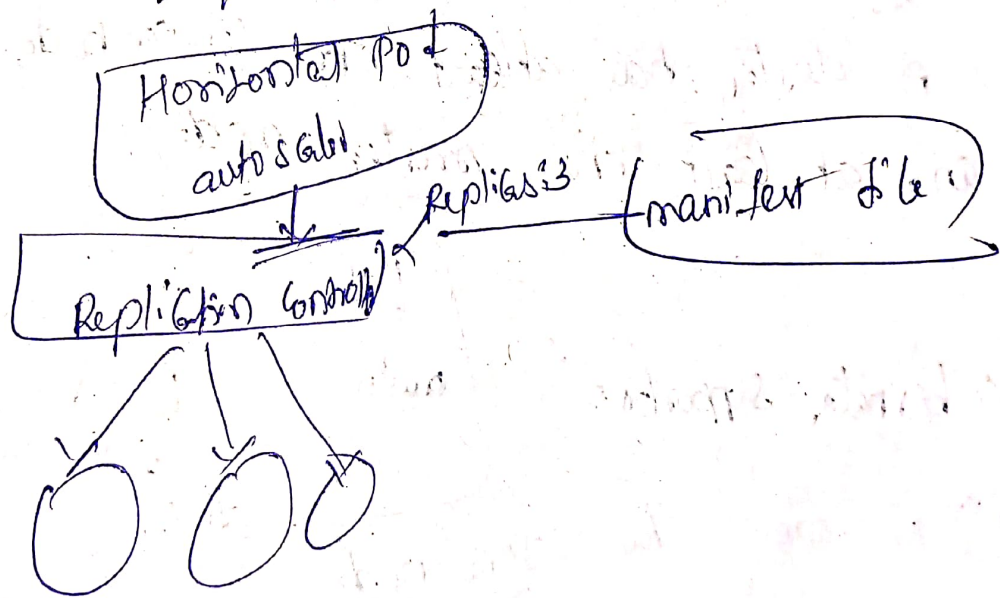 Horizontal Pod
autoscaler
Replicas:3
manifest file
Replication Controller